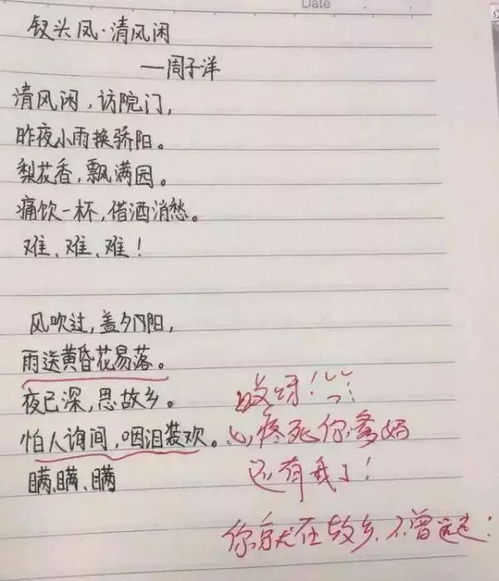 Date
钗头凤·清风闲
—周子洋
清风闲,访院门,
昨夜小雨换骄阳。
梨花香,飘满园。
痛饮一杯,借酒消愁。
难、难、难!
风吹过,盖夕阳,
雨送黄昏花易落。
夜已深,思故乡。
怕人询问,咽泪装欢。
瞒、瞒、瞒
哎呀!
心疼死你爹妈
还有我了!
你就在故乡、不曾远走!